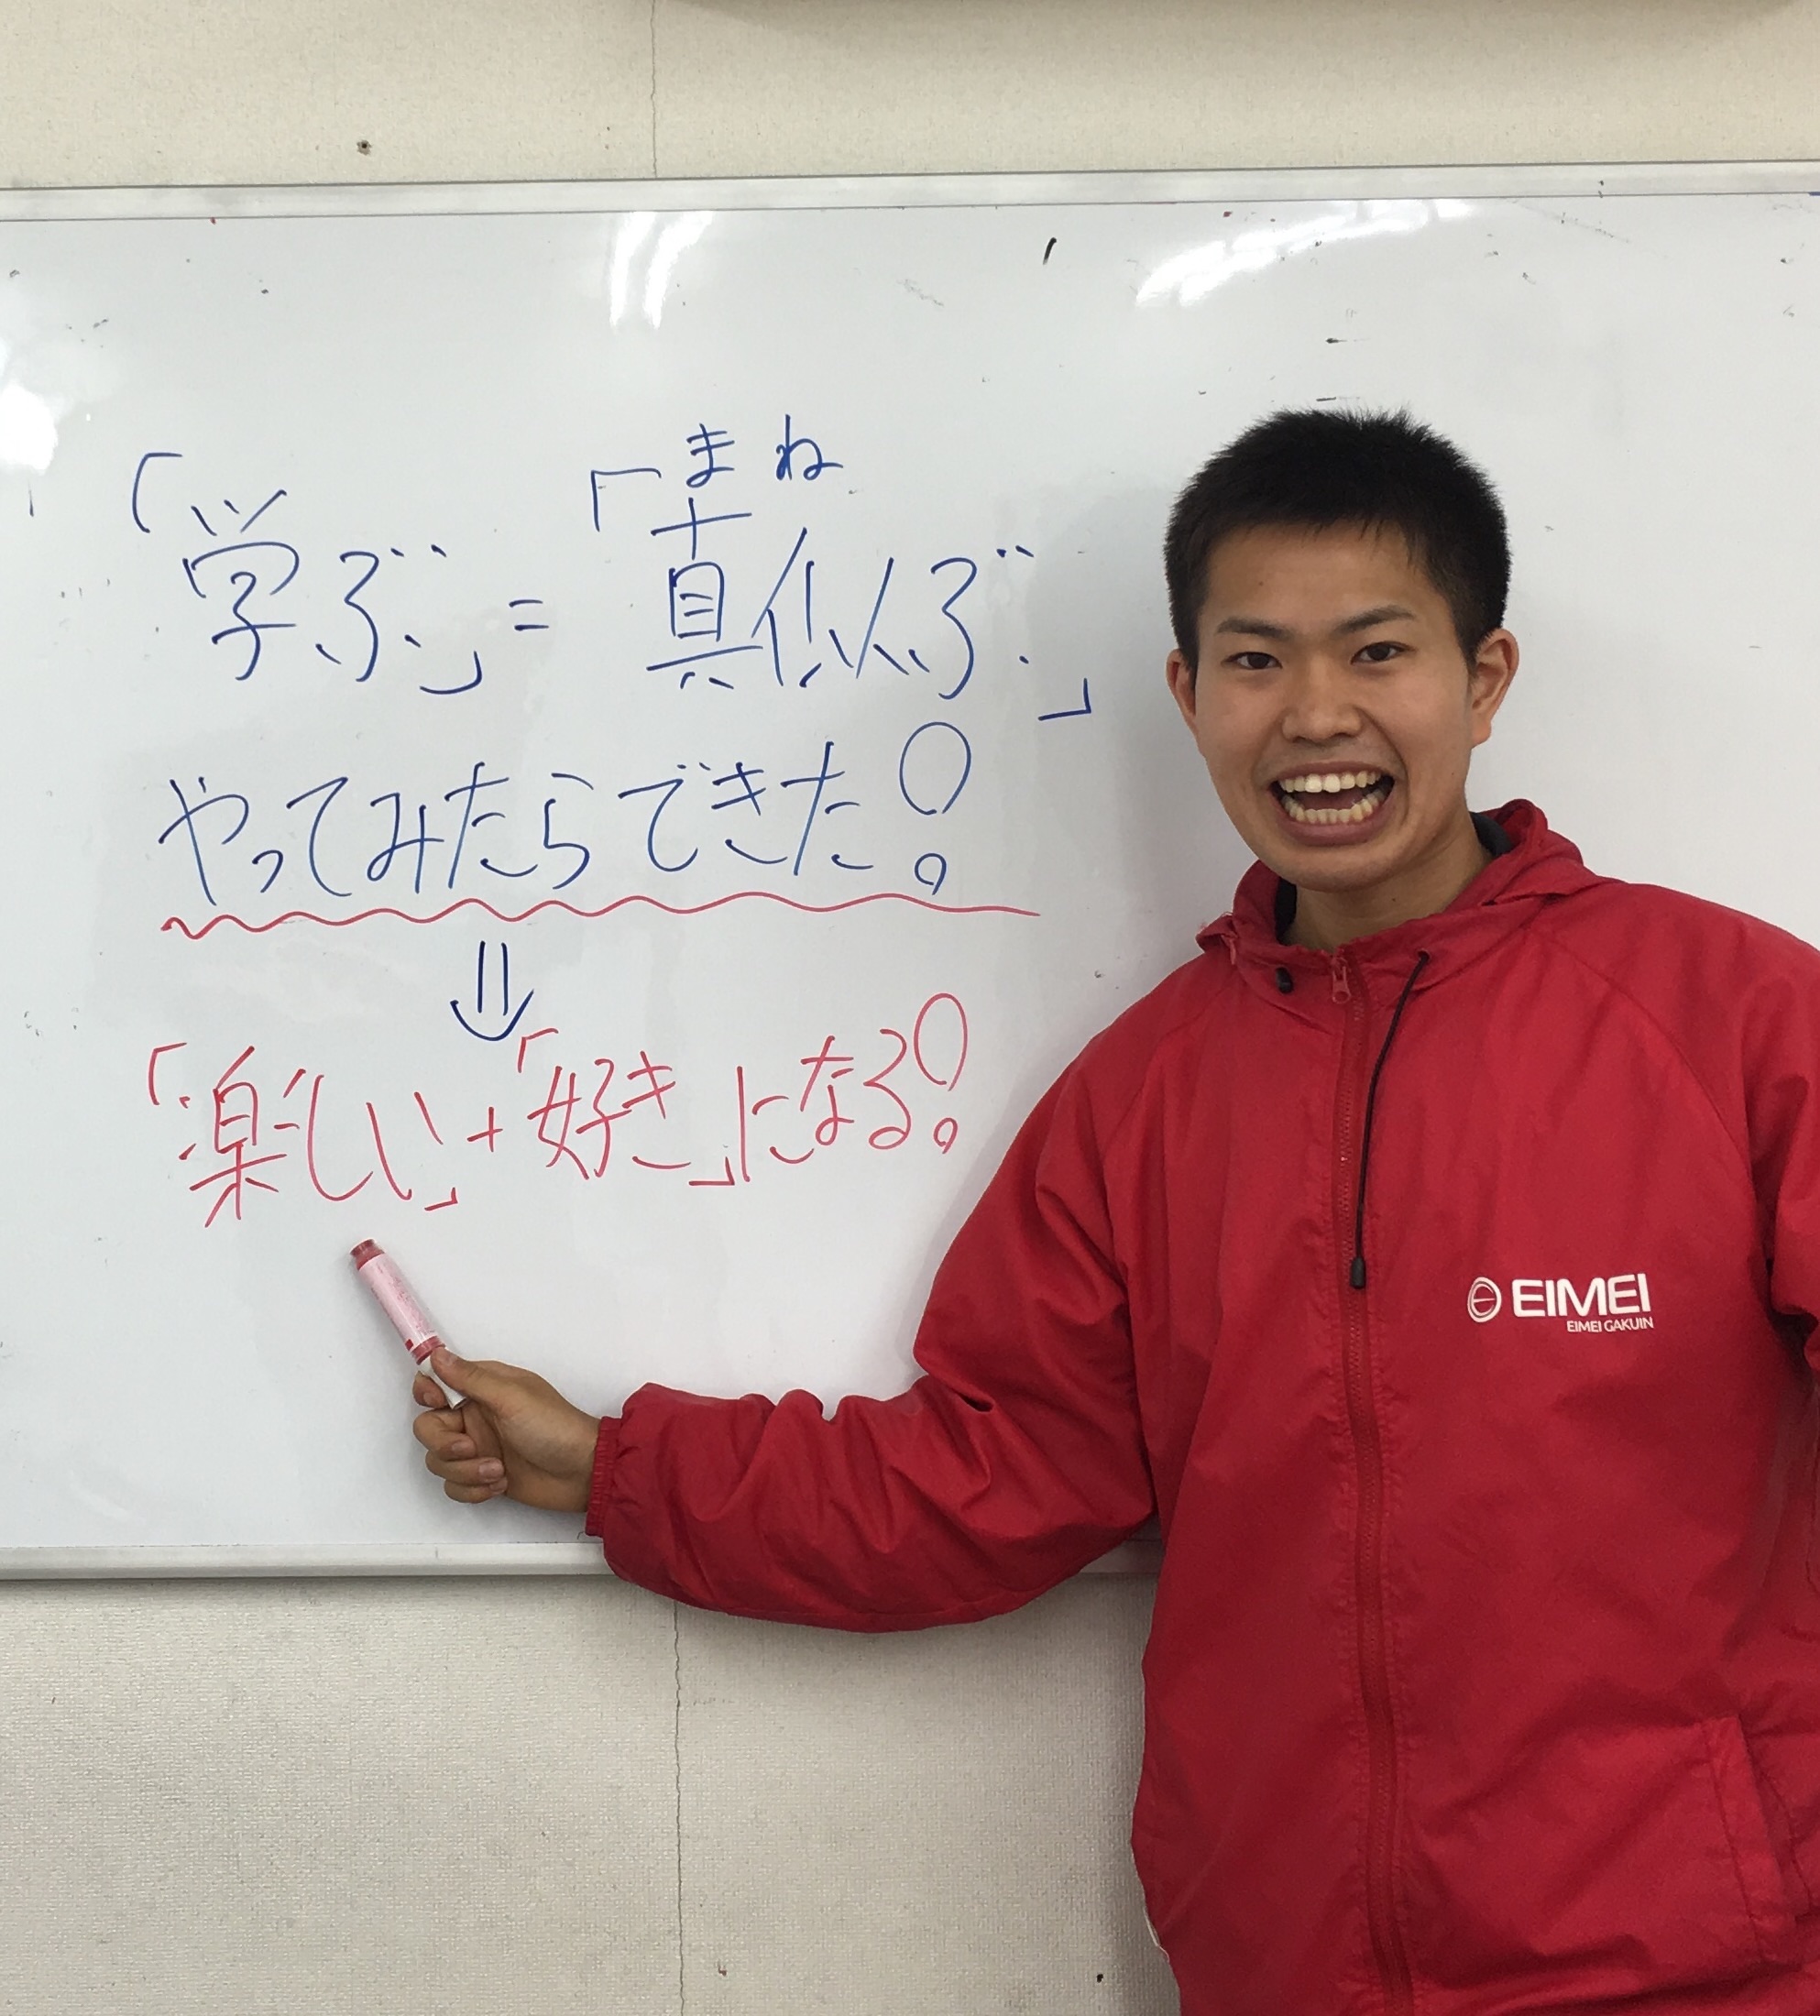 「学ぶ」=「真似ぶ」
まね
やってみたらできた!
⇓
「楽しい」+「好き」になる!
EIMEI
EIMEI GAKUIN